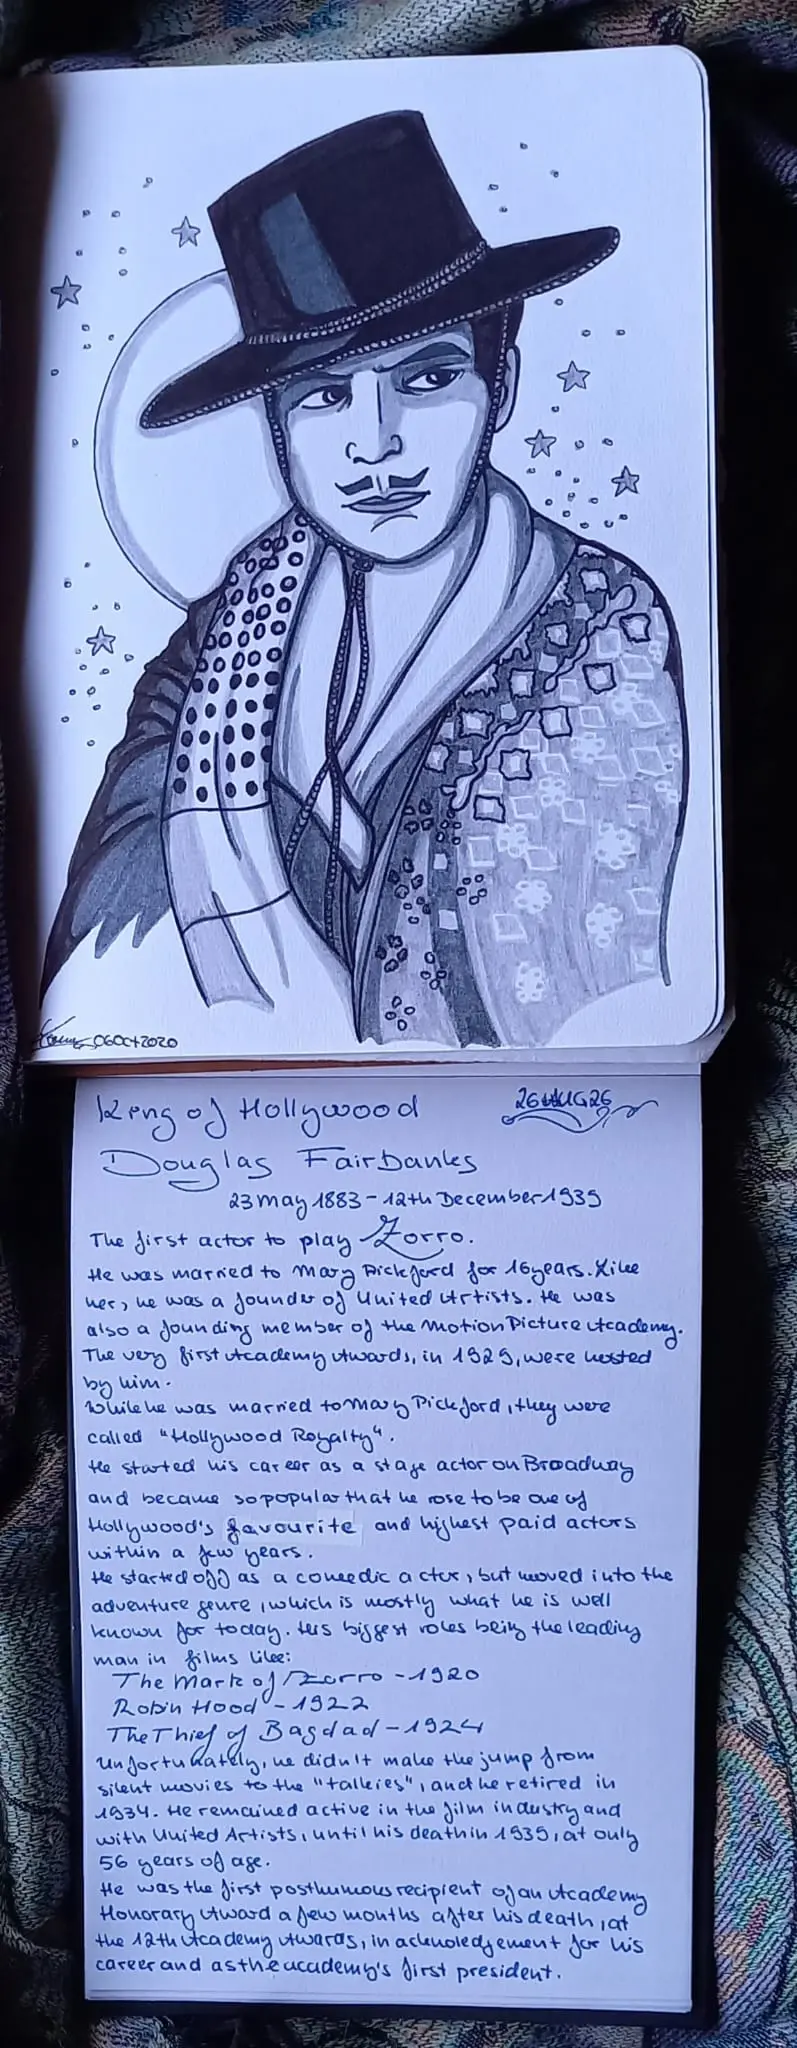 06Oct2020
King of Hollywood
26AUG26
Douglas Fairbanks
23 May 1883 - 12th December 1939
The first actor to play Zorro.
He was married to Mary Pickford for 16 years. Like
her, he was a founder of United Artists. He was
also a founding member of the Motion Picture Academy.
The very first Academy Awards, in 1929, were hosted
by him.
While he was married to Mary Pickford, they were
called "Hollywood Royalty".
He started his career as a stage actor on Broadway
and became so popular that he rose to be one of
Hollywood's favourite and highest paid actors
within a few years.
He started off as a comedic actor, but moved into the
adventure genre, which is mostly what he is well
known for today. His biggest roles being the leading
man in films like:
The Mark of Zorro - 1920
Robin Hood - 1922
The Thief of Bagdad - 1924
Unfortunately, he didn't make the jump from
silent movies to the "talkies", and he retired in
1934. He remained active in the film industry and
with United Artists, until his death in 1939, at only
56 years of age.
He was the first posthumous recipient of an Academy
Honorary Award a few months after his death, at
the 12th Academy Awards, in acknoledgement for his
career and as the academy's first president.